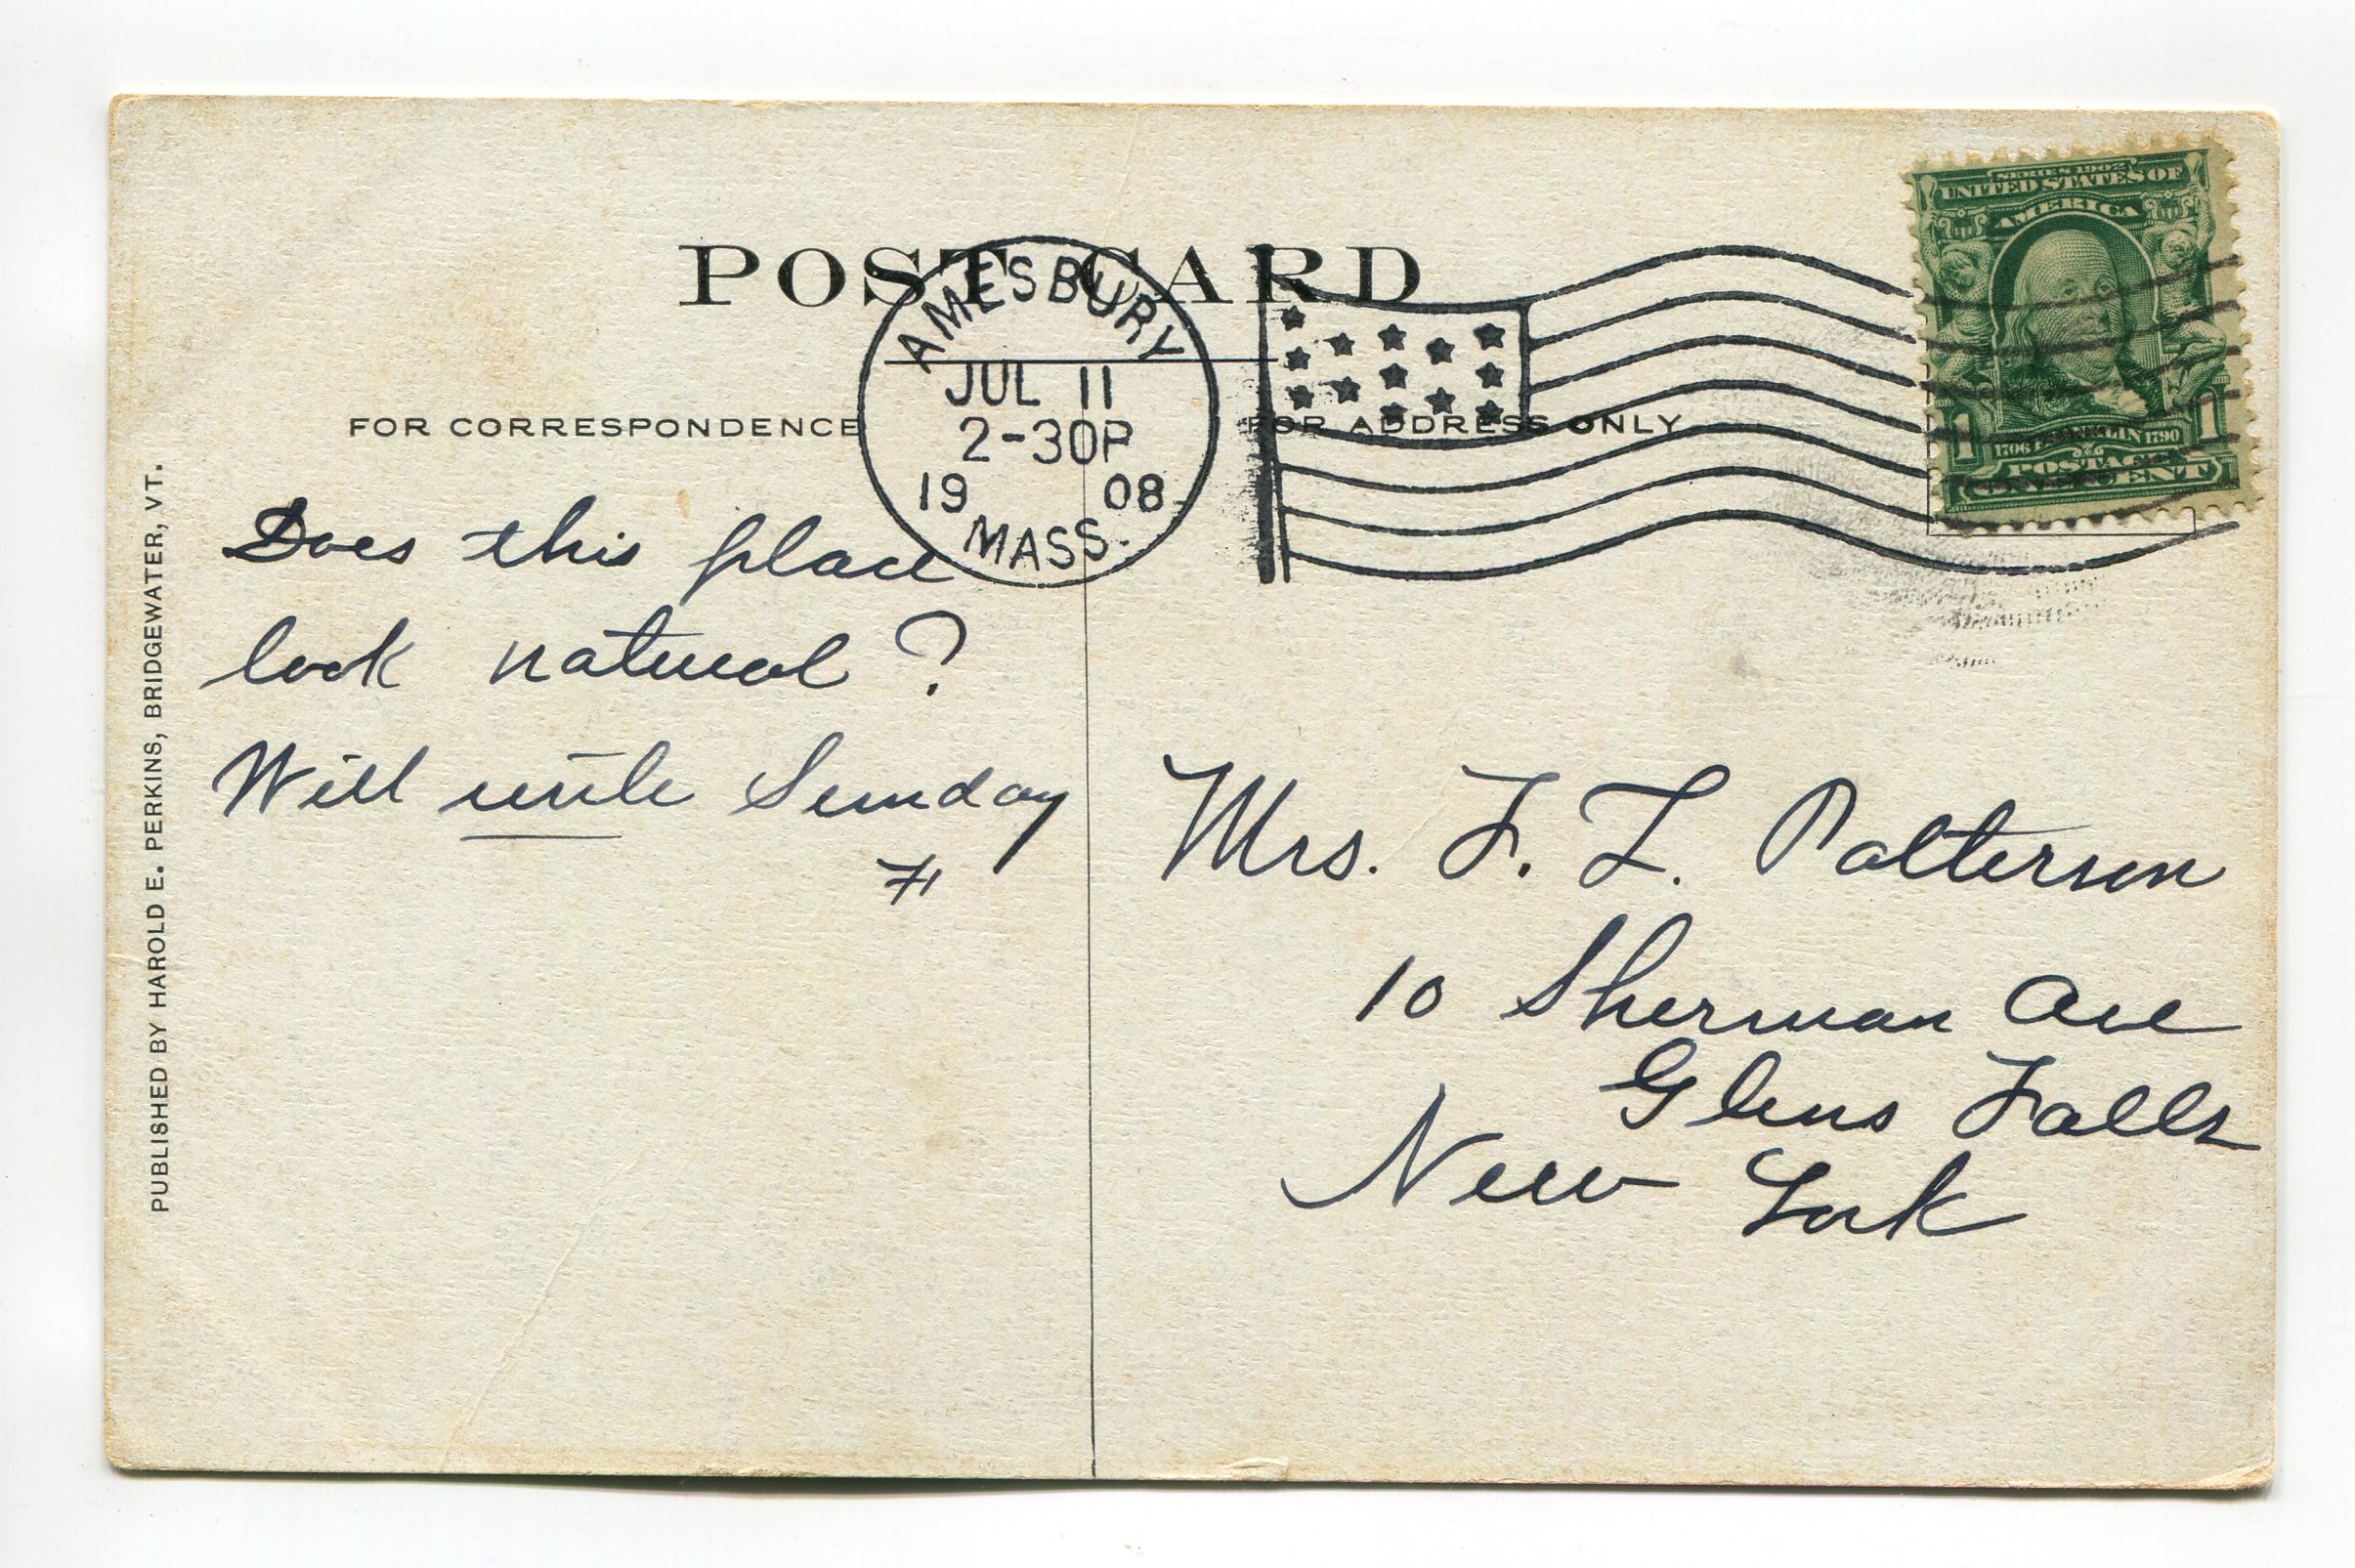 POST CARD
AMESBURY
JUL 11
2-30P
19 08
MASS.
SERIES 1902
UNITED STATES OF
AMERICA
1 1
1706 FRANKLIN 1790
POSTAGE
ONE CENT
FOR CORRESPONDENCE
FOR ADDRESS ONLY
Does this place
look natural?
Will write Sunday
Mrs. F. L. Patterson
10 Sherman Ave
Glens Falls
New York
PUBLISHED BY HAROLD E. PERKINS, BRIDGEWATER, VT.